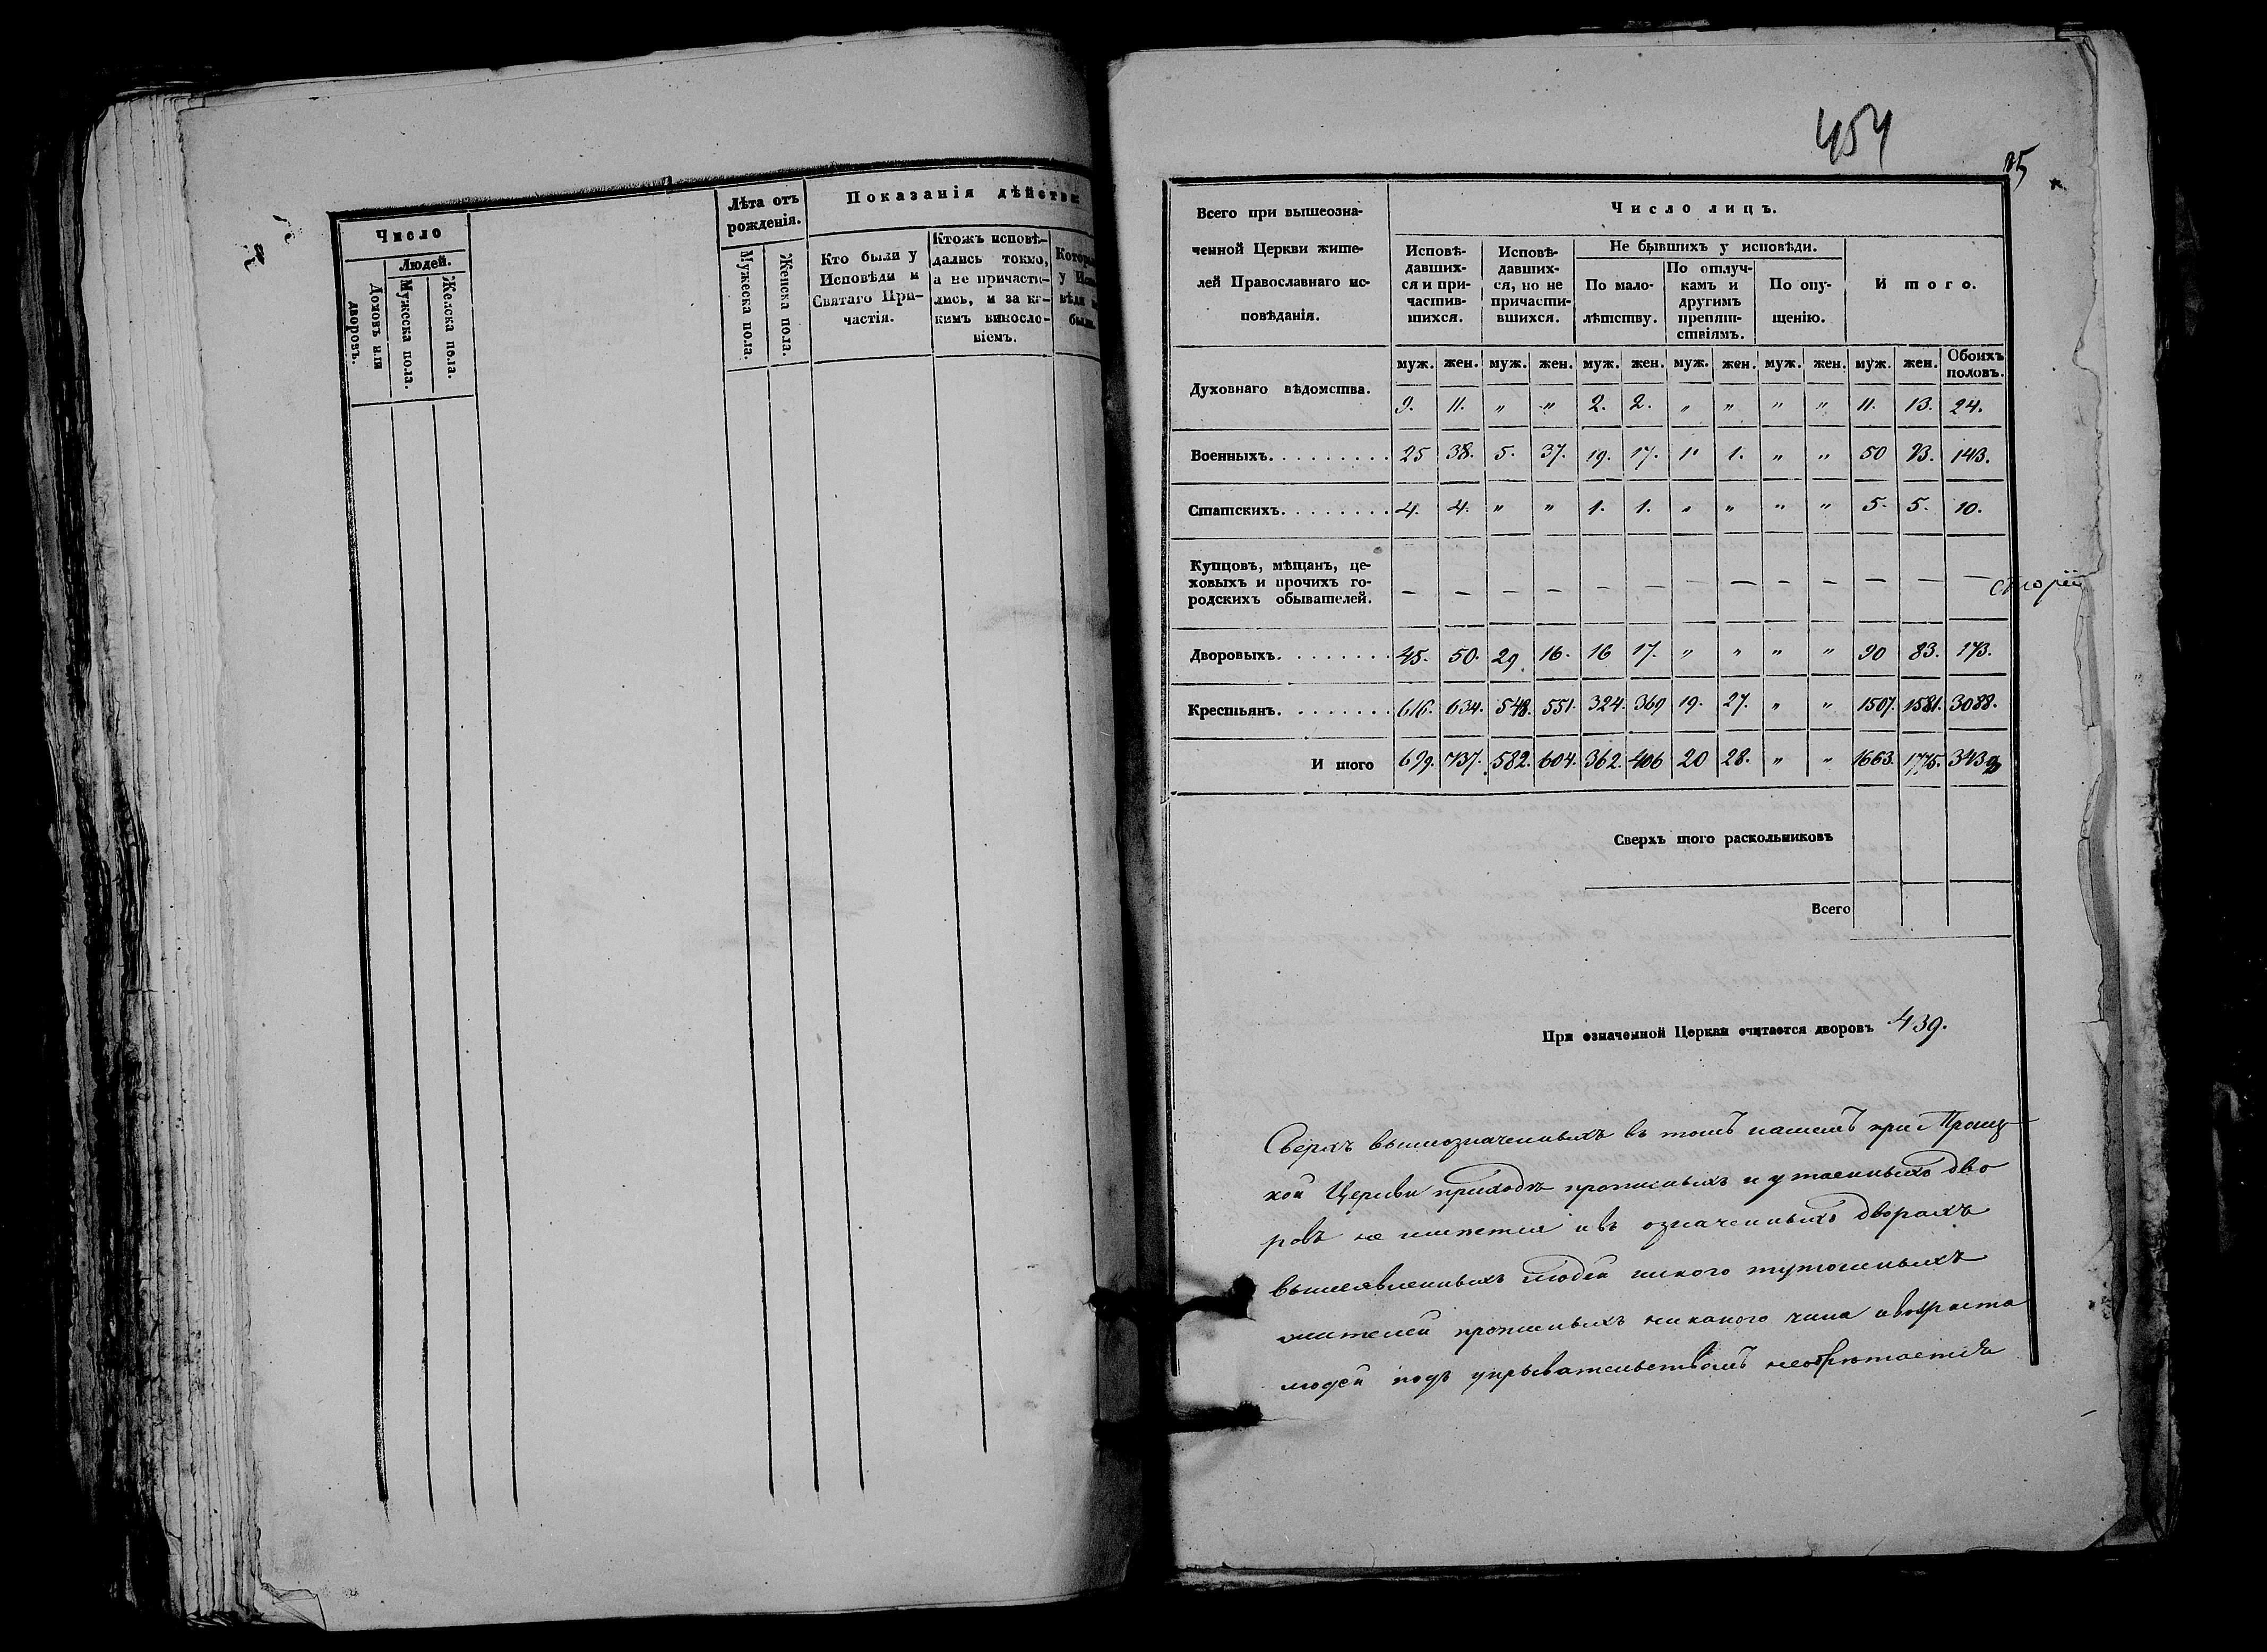 Число
Людей.
Домовъ или дворовъ.
Мужеска пола.
Женска пола.
Лѣта отъ рожденія.
Мужеска пола.
Женска пола.
Показанія дѣйстви
Кто были у
Исповѣди и
Святаго При-
частія.
Ктожъ исповѣ-
дались токмо,
а не причасти-
лись, и за ка-
кимъ винносло-
віемъ.
Котор
у Исп
вѣди н
были.
454
Всего при вышеозна-
ченной Церкви жите-
лей Православнаго ис-
повѣданія.
Число лицъ.
Исповѣ-
давших-
ся и при-
частив-
шихся.
Исповѣ-
давших-
ся, но не
причасти-
вшихся.
Не бывшихъ у исповѣди.
По мало-
лѣтству.
По отлуч-
камъ и
другимъ
препят-
ствіямъ.
По опу-
щенію.
И того.
муж. жен. муж. жен. муж. жен. муж. жен. муж. жен. муж. жен. Обоихъ половъ.
Духовнаго вѣдомства. 9. 11. " " 2. 2. " " " " 11. 13. 24.
Военныхъ. . . . . . . . . 25 38. 5. 37. 19. 17. 1. 1. " " 50 93. 143.
Статскихъ. . . . . . . . 4. 4. " " 1. 1. " " " " 5. 5. 10.
Купцовъ, мѣщанъ, це-
ховыхъ и прочихъ го-
родскихъ обывателей. — — — — — — — — — — — — —
Дворовыхъ. . . . . . . . 45. 50. 29. 16. 16 17. " " " " 90 83. 173.
Крестьянъ. . . . . . . . 616. 634. 548. 551. 324. 369 19. 27. " " 1507. 1581. 3088.
И того 699. 737. 582. 604. 362. 406 20 28. " " 1663. 1775. 3438
Сверхъ того раскольниковъ
Всего
При означенной Церкви считается дворовъ 439.
Сверхъ вышеозначенныхъ въ томъ нашемъ при Троиц
кой Церкви приходѣ прописныхъ и утаенныхъ дво
ровъ не имѣется и въ означенныхъ дворахъ
вышеявленныхъ людей никого тутошныхъ
жителей прописныхъ никакого чина и возраста
людей подъ укрывательствомъ необрѣтается